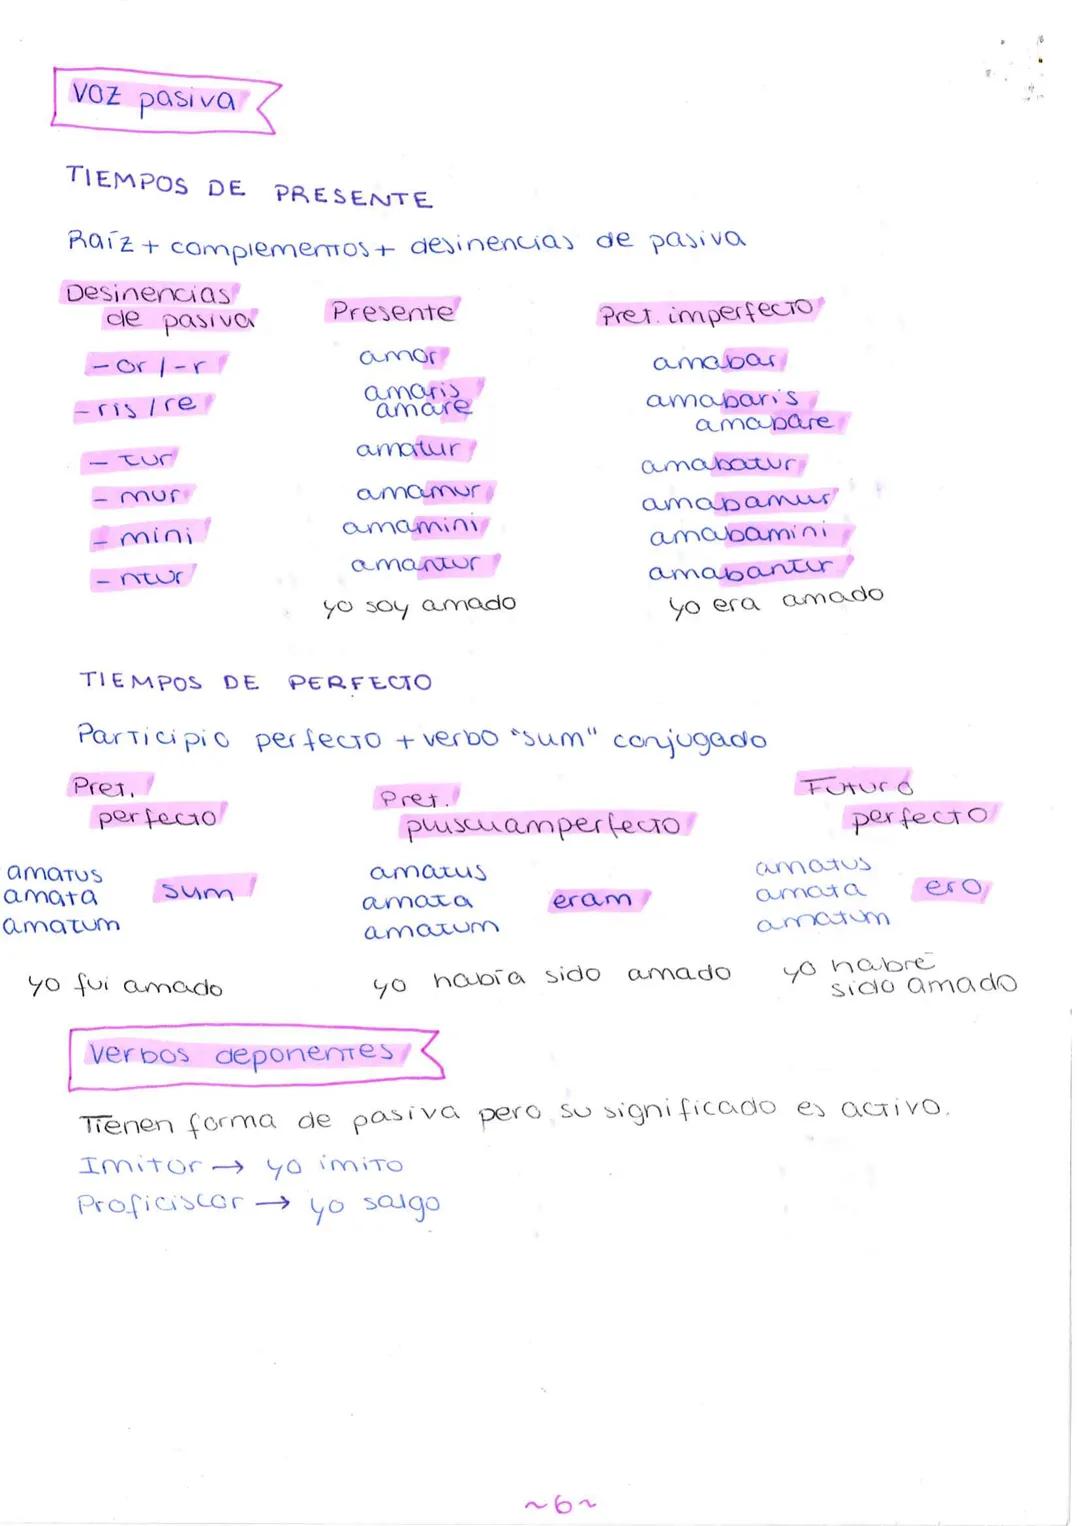 Voz pasiva
TIEMPOS DE PRESENTE
Raíz + complementos + desinencias de pasiva
Desinencias de pasiva
Presente
Pret. imperfecto
- or / -r
amor
amabar
- ris / re
amaris
amabaris
amare
amabare
- tur
amatur
amabatur
- mur
amamur
amabamur
- mini
amamini
amabamini
- ntur
amantur
amabantur
yo soy amado
yo era amado
TIEMPOS DE PERFECTO
Participio perfecto + verbo "sum" conjugado
Pret. perfecto
Pret. pluscuamperfecto
Futuro perfecto
amatus
amata
amatum
sum
amatus
amata
amatum
eram
amatus
amata
amatum
ero
yo fui amado
yo había sido amado
yo habré
sido amado
Verbos deponentes
Tienen forma de pasiva pero su significado es activo.
Imitor → yo imito
Proficiscor → yo salgo
~6~